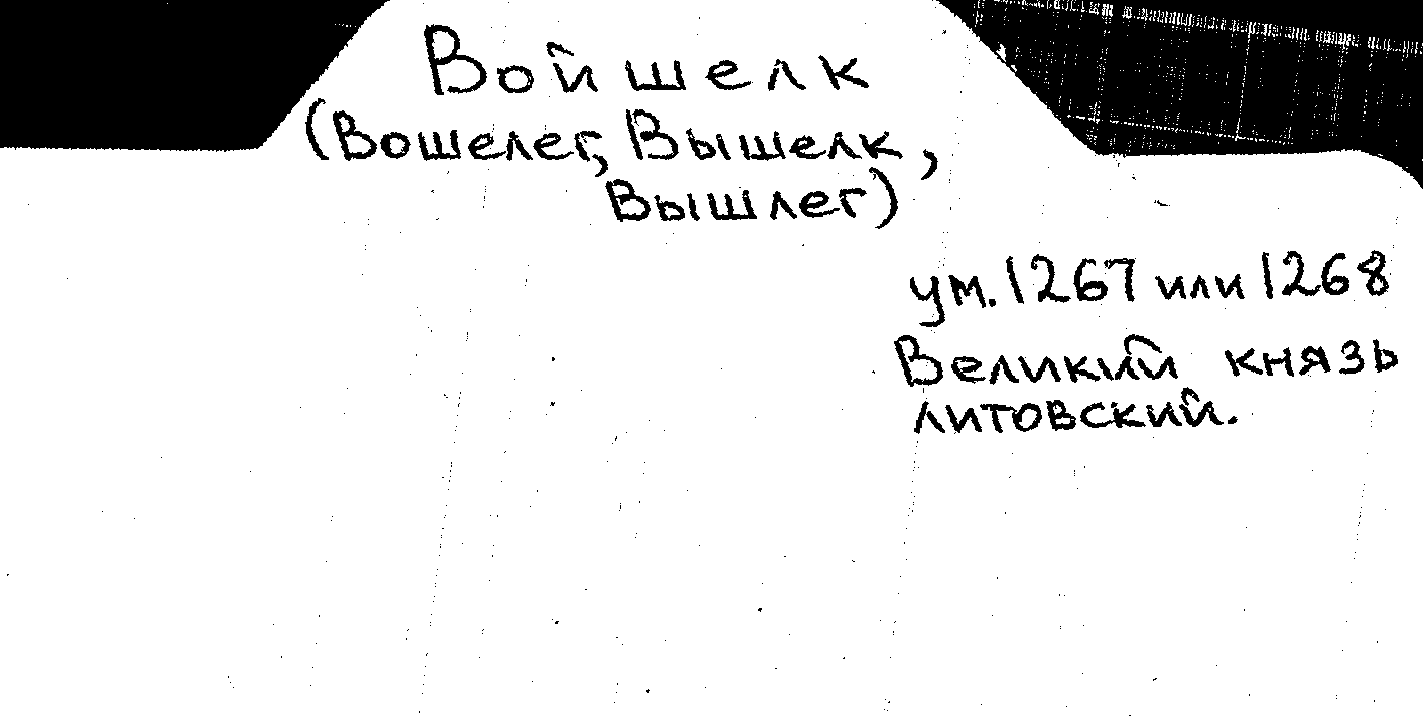 Войшелк
(Вошелег, Вышелк,
Вышлег)
ум. 1267 или 1268
Великий князь
литовский.